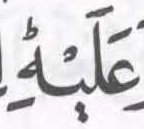 عَلَيْهِؕ